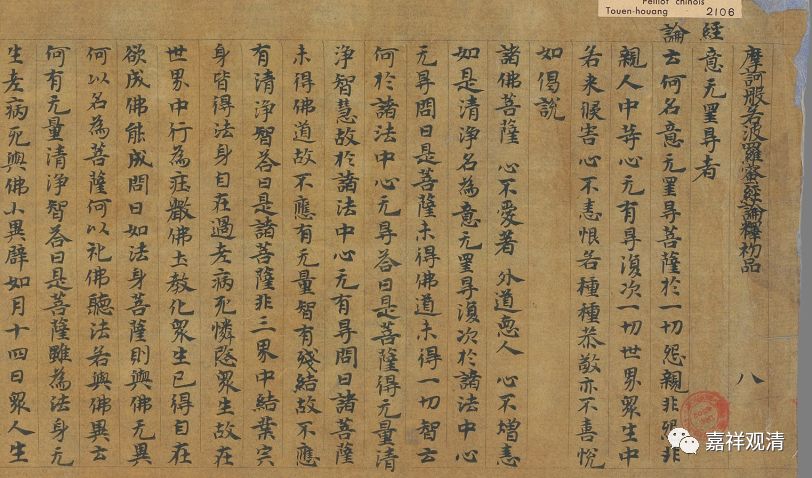 Pelliot chinois
Touen-houang 2106
摩訶般若波羅蜜經論釋初品 八
經 意无罣㝵者
論 云何名意无罣㝵菩薩於一切怨親非怨非
親人中等心无有㝵復次一切世界眾生中
若来侵害心不恚恨若種種恭敬亦不喜悅
如偈說
諸佛菩薩 心不愛著 外道惡人 心不增恚
如是清淨名為意无罣㝵復次於諸法中心
无㝵問曰是菩薩未得佛道未得一切智云
何於諸法中心无㝵荅曰是菩薩得无量清
淨智慧故於諸法中心无有㝵問曰諸菩薩
未得佛道故不應有无量智有殘結故不應
有清淨智荅曰是諸菩薩非三界中結業宍
身皆得法身自在過老病死憐愍眾生故在
世界中行為莊嚴佛土教化眾生已得自在
欲成佛能成問曰如法身菩薩則與佛无異
何以名為菩薩何以礼佛聽法若與佛異云
何有无量清淨智荅曰是菩薩雖為法身无
生老病死與佛小異辟如月十四日眾人生
嘉祥观清